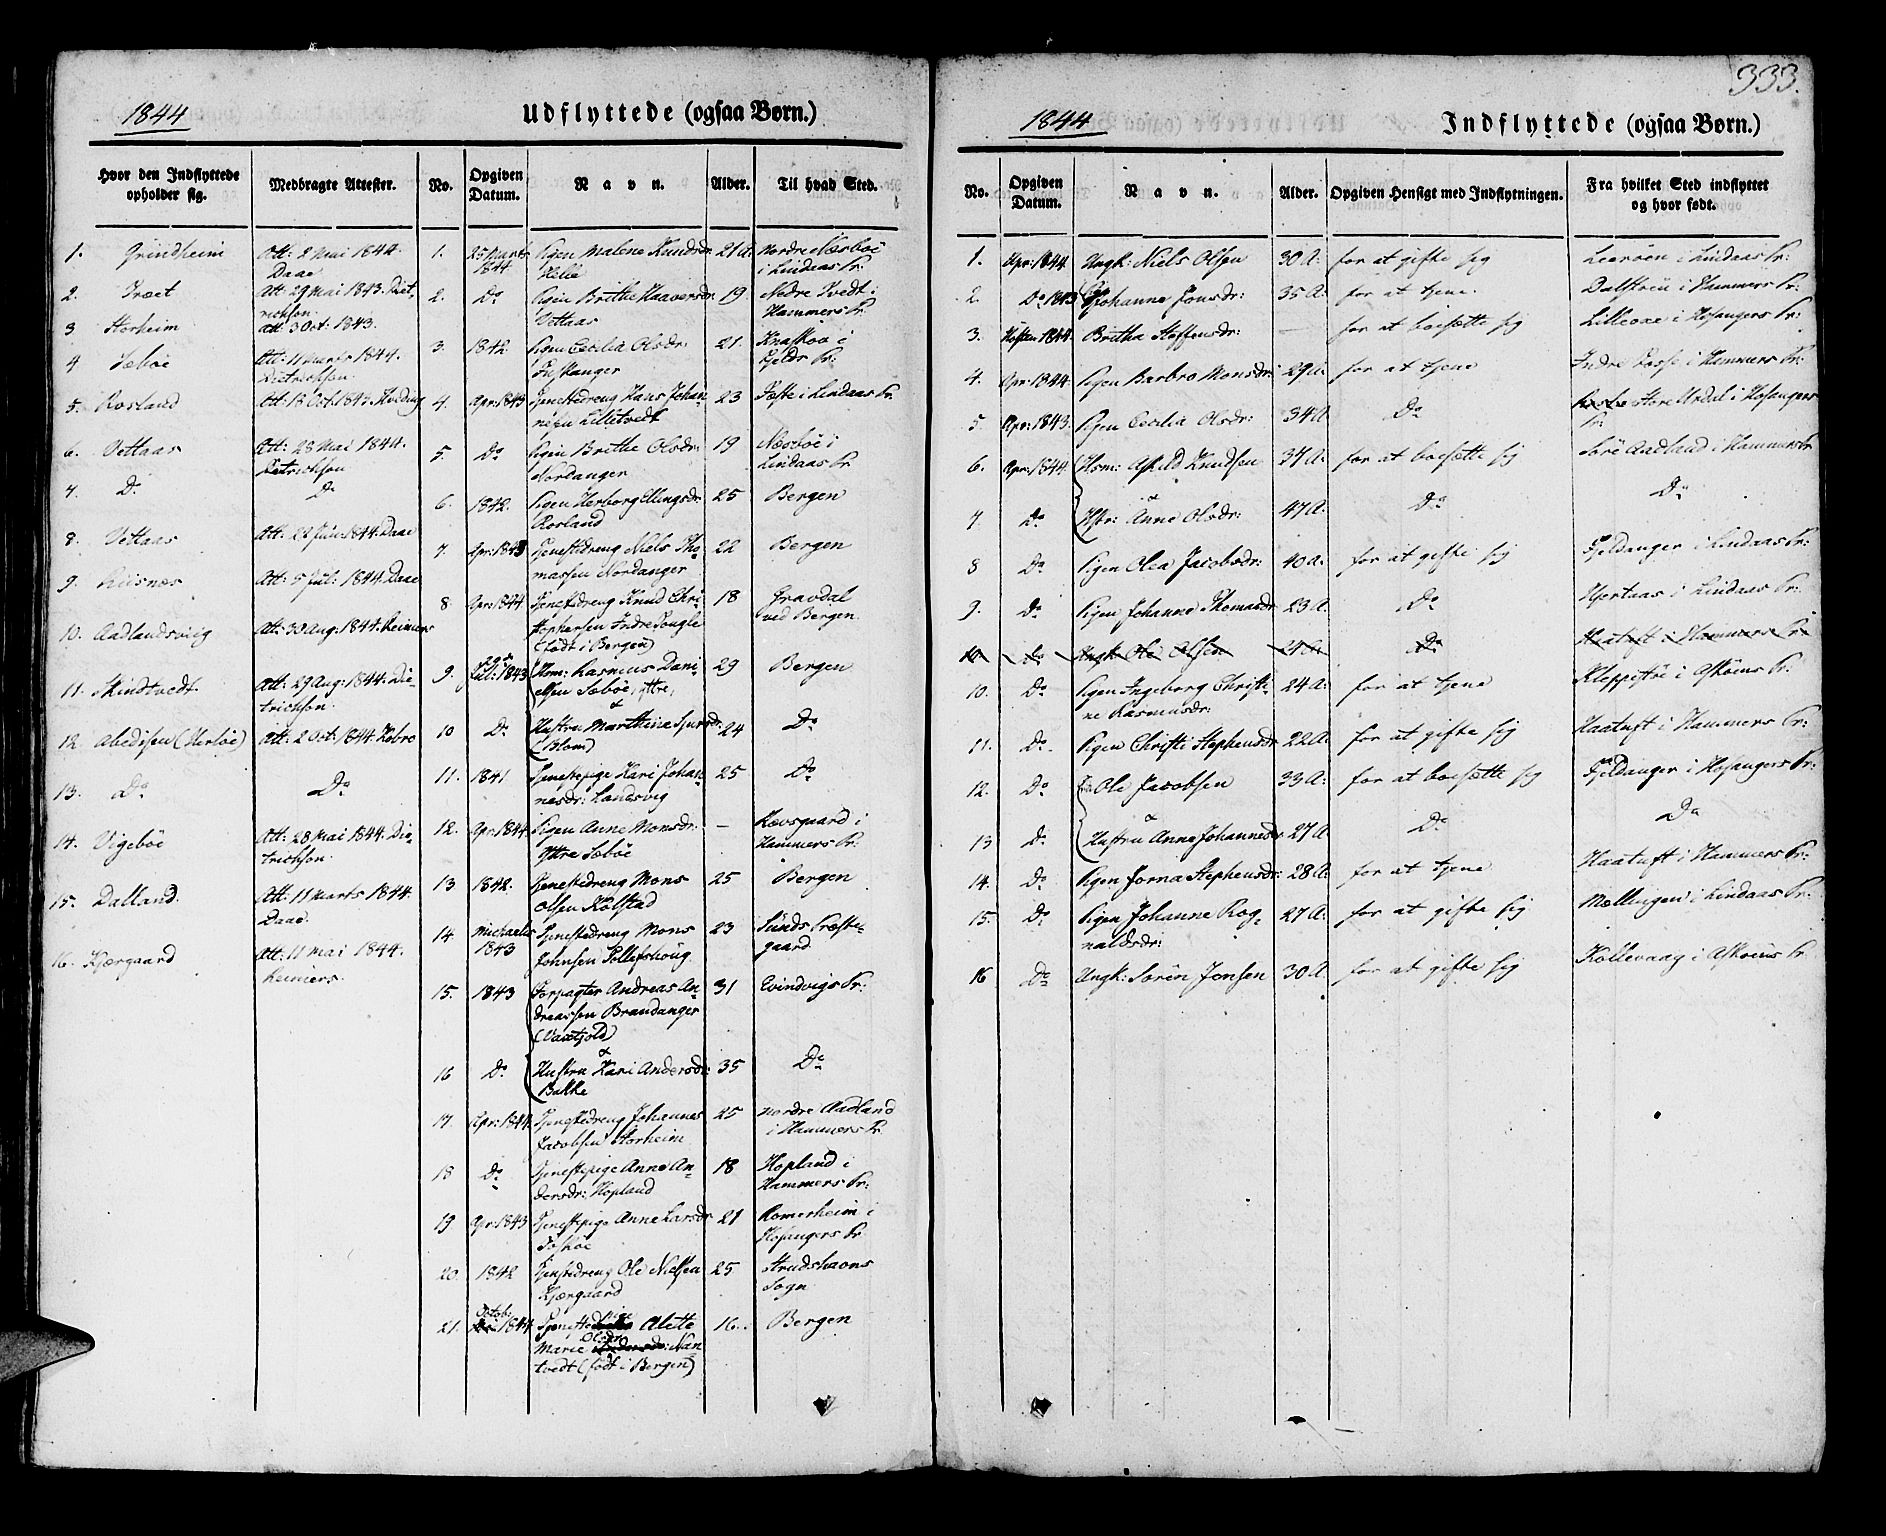 1844
Udflyttede (ogsaa Børn.)
Hvor den Indflyttede opholder sig.
Medbragte Attester.
No.
Opgiven Datum.
Navn.
Alder.
Til hvad Sted.
1. Grindheim Att: 2 Mai 1844. Daae
2. Træet Att: 29 Mai 1843. Diet-
richson.
3 Storheim Att: 3 Oct: 1843.
4 Sæbøe Att: 11 Marts 1844.
Dietrichson.
5. Rosland Att: 18 Oct: 1843
6. Vettaas Att: 28 Mai 1844.
Dietrichson
7. Do Do
8. Vettaas Att: 22 Jun: 1844. Daae
9. Riisnæs Att: 5 Jul: 1844. Daae
10. Aadlandsviig Att: 30 Aug: 1844. Reimers
11. Skindtvedt. Att: 29 Aug: 1844. Die-
trichson.
12. (Herløe) Att: 2 Oct: 1844. Kobro
13. Do Do
14. Vigebøe Att: 28 Mai 1844. Die-
trichson.
15. Dalland. Att: 11 Marts 1844.
Daae.
16. Kjærgaard Att: 11 Mai 1844.
Reimers.
1. 25 Marts Pigen Malene Knudsdr 21 A. Nordre Næsbøe
1844 Helle i Lindaas Pr:
2. Do Pigen Brithe Haaversdr 19. Nedre Tvedt i
Vettaas Hammers Pr.
3. 1842. Pigen Cecilia Olsdr: 21. i
Fieskanger Fjelds Pr:
4. Apr: 1843 Tjenestedreng Hans Johan- 23 Fæste i Lindaas Pr.
nesen Lilletvedt
5. Do Pigen Brithe Olsdr: 19 Næsbøe i
Nordanger Lindaas Pr.
6. 1842. Pigen Herborg Ellingsdr 25 Bergen
Rosland
7. Apr: 1843 Tjenestedreng Niels Tho- 22 Bergen
massen Nordanger
8. Apr: 1844 Tjenestedreng Knud Chri- 18 Gravdal
stophersen Indre Songle ved Bergen.
(født i Bergen)
9. Jul: 1843 Hsm: Rasmus Dani- 29 Bergen
elsen Sæbøe, yttre,
&
10 Do Hustru Marthina Sjursdr: 24 Do
(Blom)
11. 1841 Tjenestepige Kari Johan- 25 Do
nesdr: Landsvig
12. Apr: 1844 Pigen Anne Monsdr: — Røvsgaard i
Yttre Sæbøe Hammers Pr:
13 1842. Tjenestedreng Mons 25 Bergen
Olsen Kolstad
14 Michaelis Tjenestedreng Mons 23 Sunds Præste-
1843 Johnsen Tollefshoug gaard.
15. 1843 Forpagter Andreas An- 31 Evindvigs Pr:
dreassen Brandanger
&
16 Do Hustru Kari Andersdr: 35 Do
Bakke
17. Apr: 1844. Tjenestedreng Johannes 25 Nordre Aadland
Jacobsen Storheim i Hammers Pr.
18 Do Tjenestepige Anne An- 18 Hopland i
dersdr: Hopland Hammers Pr:
19 Apr: 1843 Tjenestepige Anne Larsdr 21 Romerheim i
Toskøe Hosangers Pr.
20. 1842 Tjenestedreng Ole Nielsen 25 Strudshavns
Kjærgaard Sogn
21. Octob: 1844 Tjenestepige Alette 16. Bergen
Marie Olsdr: Nan-
tvedt (født i Bergen)
333.
1844
Indflyttede (ogsaa Børn.)
No.
Opgiven Datum.
Navn.
Alder.
Opgiven Hensigt med Indflytningen.
Fra hvilket Sted indflyttet og hvor født.
1. Apr: 1844 Ungk: Niels Olsen 30 A: for at gifte sig Leerøen i Lindaas Pr:
2. Do 1843 Johanne Jonsdr: 35 A: for at tjene. Dalstøen i Hammers Pr:
3. Høsten 1844. Britha Steffensdr: — for at boesætte sig Lilleoxe i Hosangers Pr:
4. Apr: 1844. Pigen Barbro Monsdr: 29 A: for at tjene Indre Fosse i Hammers Pr:
5. Apr: 1843. Pigen Cecilia Olsdr: 34 A Do Store Urdal i Hosangers
Pr:
6. Apr: 1844 Hsm: Askild Knudsen 37 A: for at boesætte sig Søre Aadland i Hammers Pr
&
7. Do Hstr: Anne Olsdr: 47 A. Do Do
8 Do Pigen Olea Jacobsdr: 40 A: for at gifte sig Fjeldanger i Lindaas Pr:
9. Do Pigen Johanne Thomasdr 23 A. Do Hjertaas i Lindaas Pr:
10. Do Ungk: Ole Olsen 24 A: Do Haatuft i Hammers Pr:
10. Do Pigen Ingeborg Christi- 24 A: for at tjene Kleppestøe i Askøens Pr:
ne Rasmusdr:
11. Do. Pigen Christi Stephensdr 22 A: for at gifte sig Haatuft i Hammers Pr:
12. Do Ole Jacobsen 33 A: for at boesætte sig Fjeldanger i Hosangers Pr:
&
13 Do Hustru Anna Johannesdr 27 A: Do Do
14. Do Pigen Jorna Stephensdr: 28 A for at tjene Haatuft i Hammers Pr:
15. Do Pigen Johanne Rog- 27 A: for at gifte sig Mællingen i Lindaas Pr:
naldsdr:
16 Do Ungk: Søren Jonsen 30 A for at gifte sig Kollevaag i Askøens Pr: